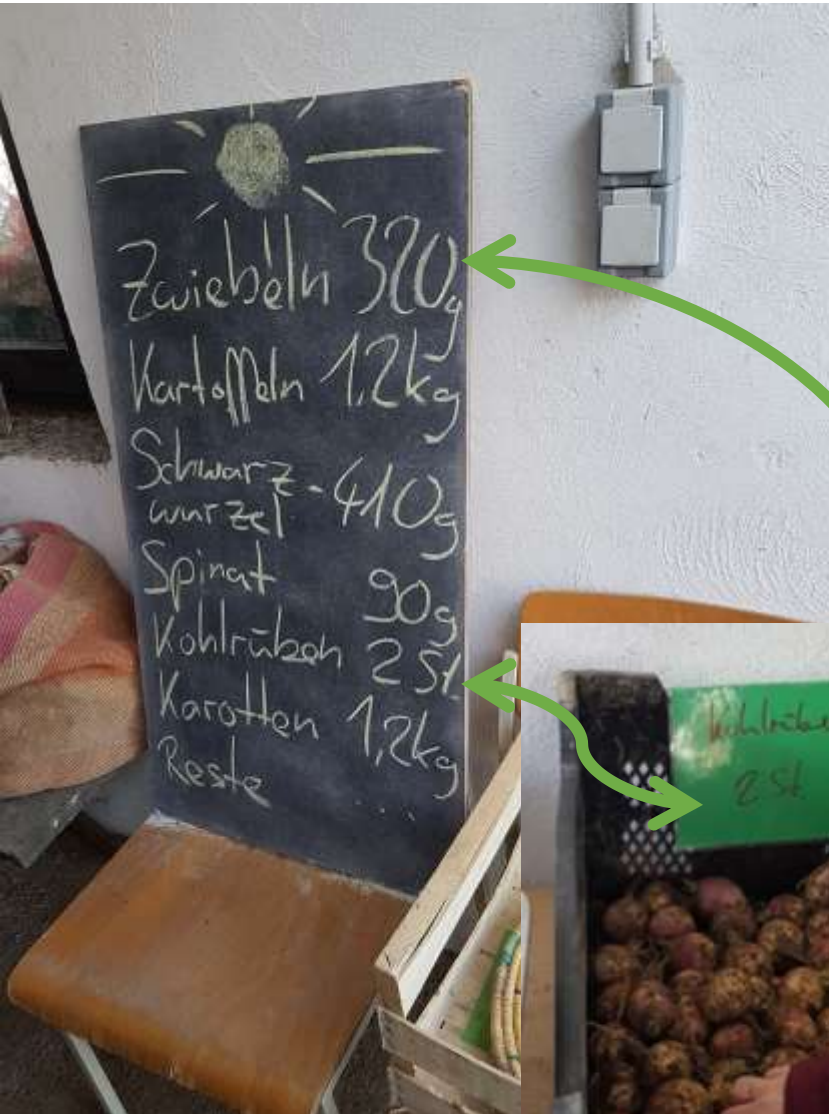 Zwiebeln 320g
Kartoffeln 1,2kg
Schwarz-
wurzel 410g
Spinat 90g
Kohlrüben 2 St.
Karotten 1,2kg
Reste ....
Kohlrübe
2 St